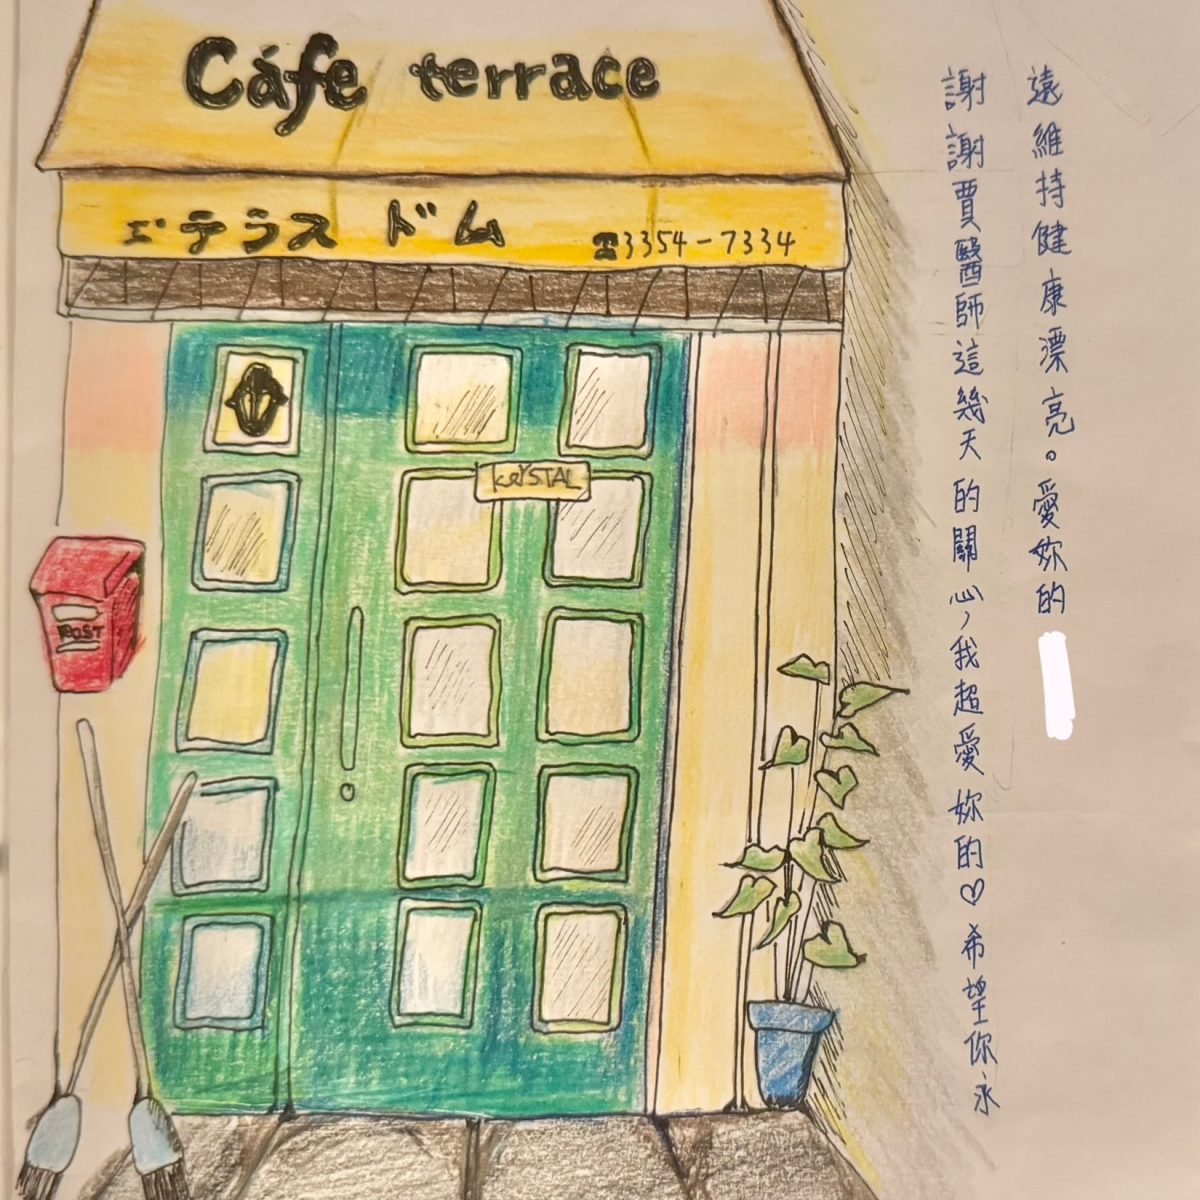 Cafe terrace
エ゙テラス ドム
☎3354-7334
KRYSTAL
POST
謝謝賈醫師這幾天的關心,我超愛妳的♡希望你永
遠維持健康漂亮。愛妳的